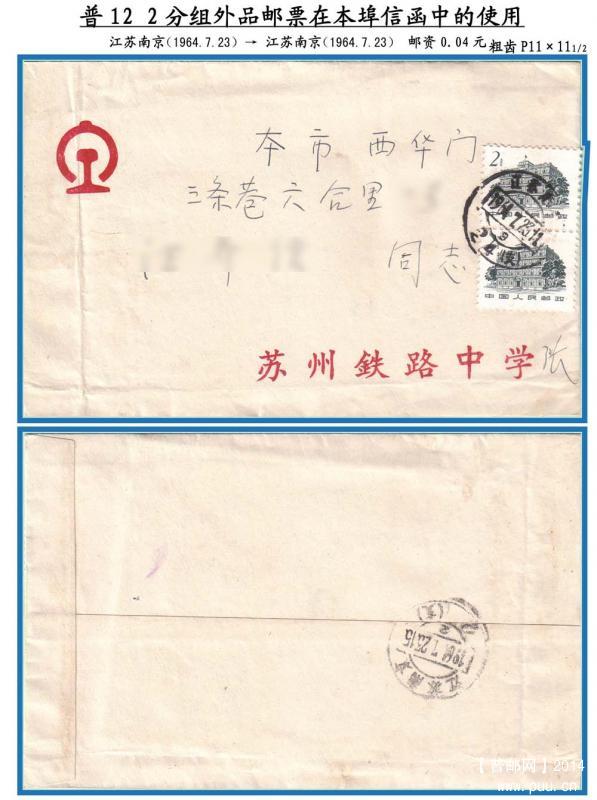 普12 2分组外品邮票在本埠信函中的使用
江苏南京(1964.7.23) → 江苏南京(1964.7.23) 邮资0.04元 粗齿P11×11 1/2
本市 西华门
三条巷六合里
同志
苏州鉄路中学 张
2分
中国人民邮政
1964.7.23.
江苏南京
1964.7.23.15
【普邮网】2014
www.puu.cn